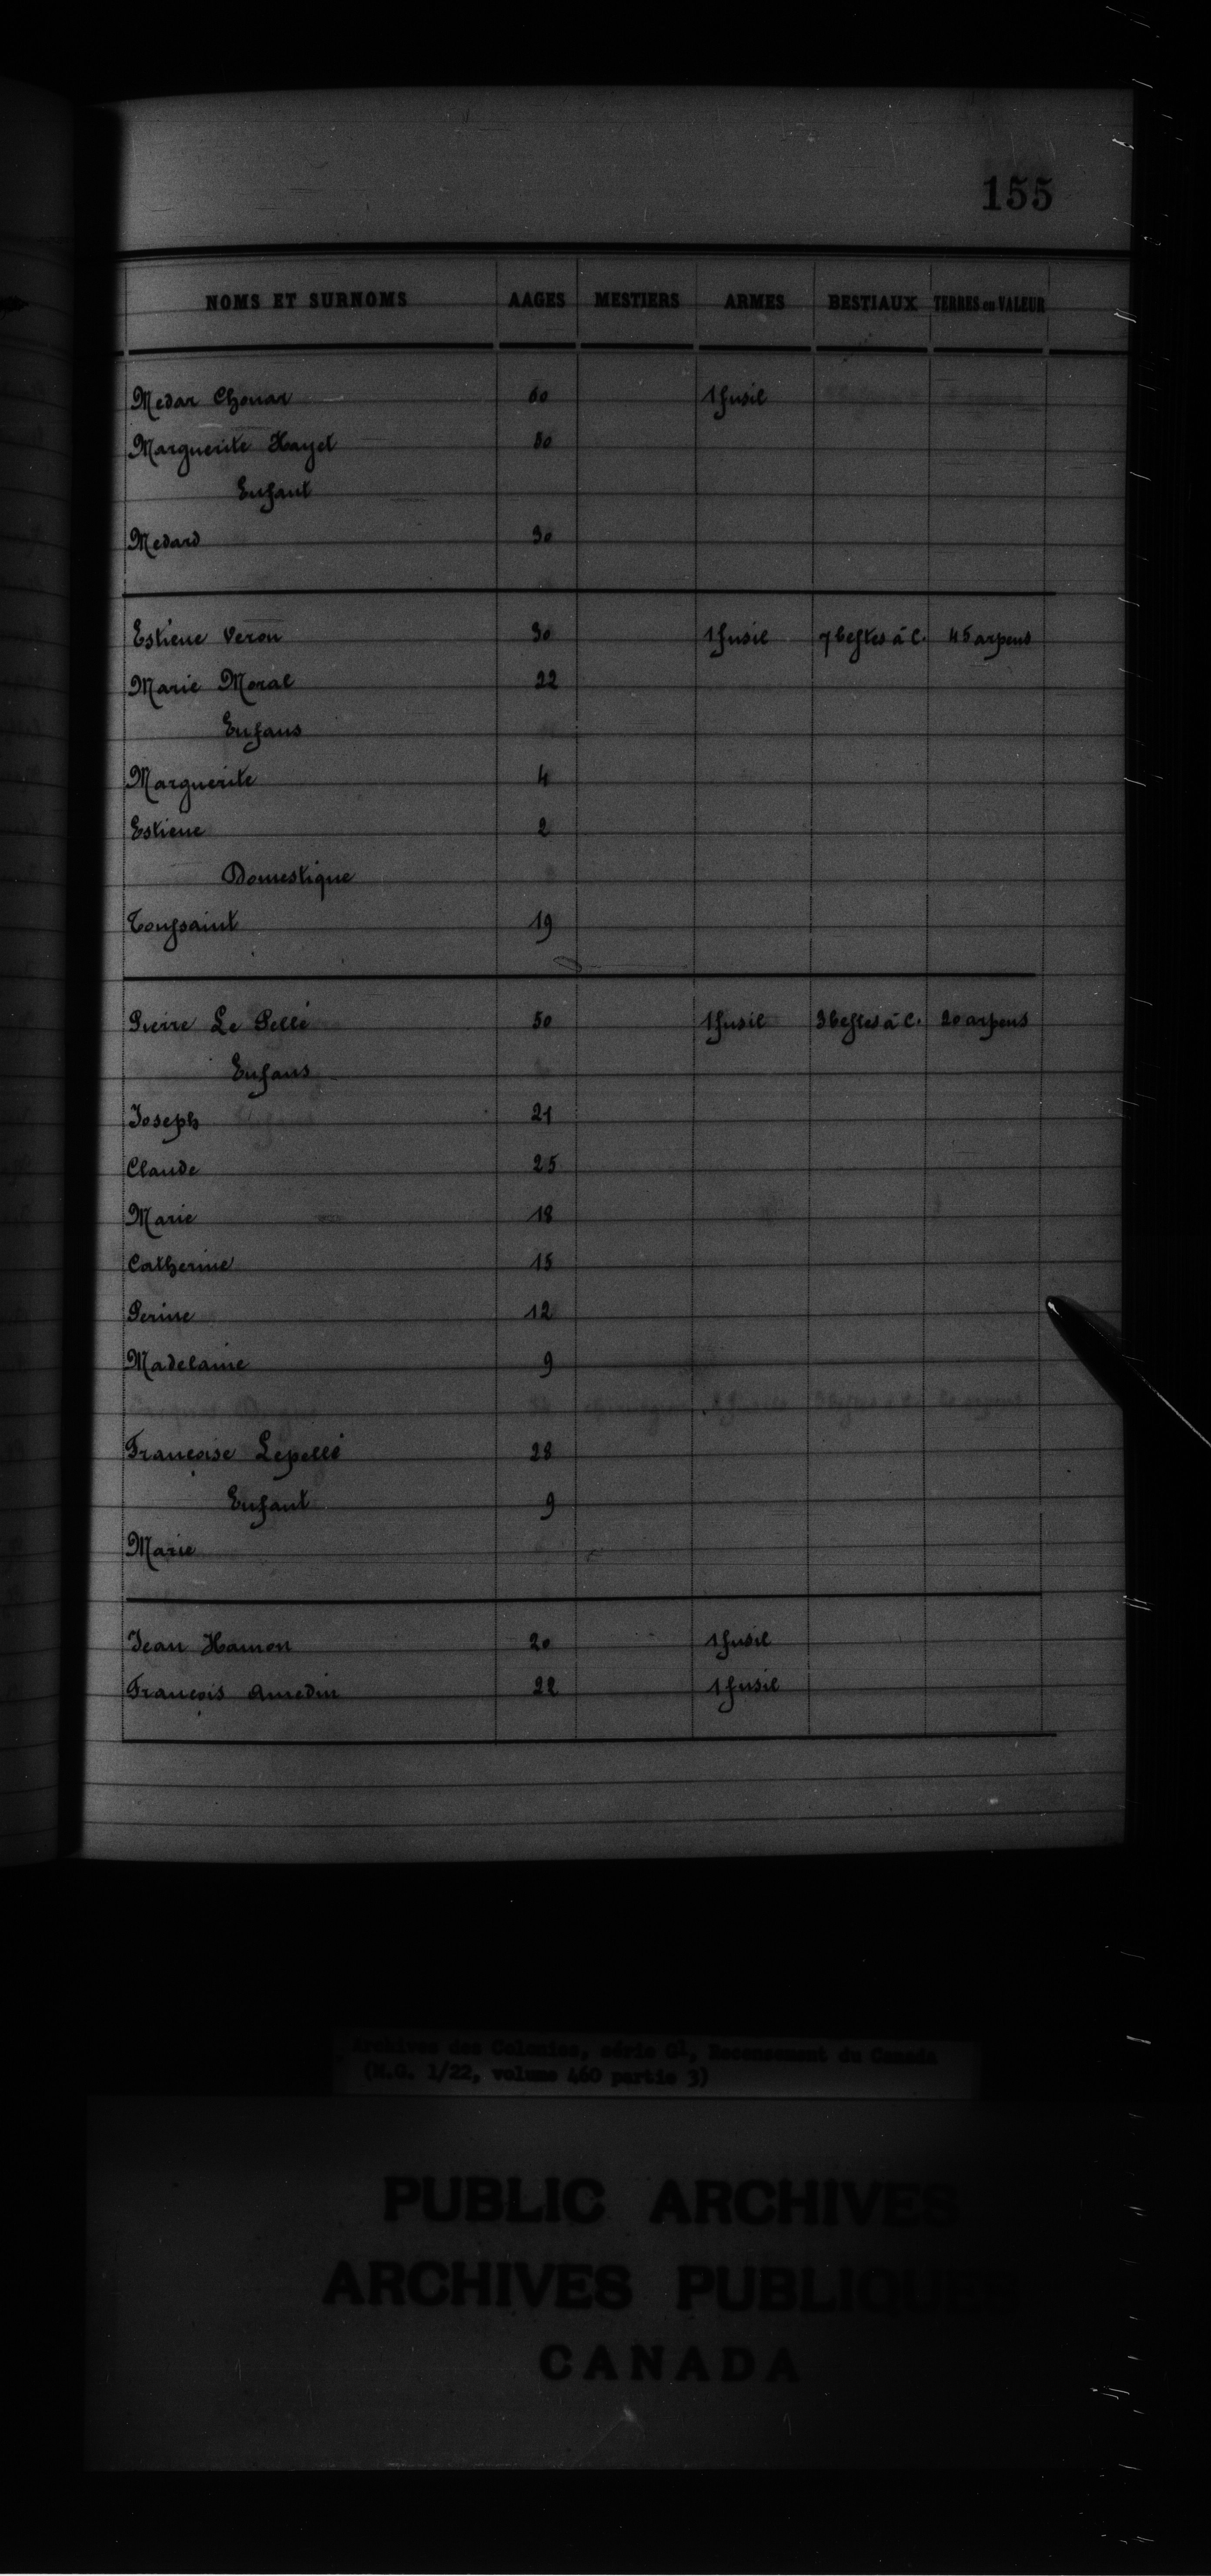 155
NOMS ET SURNOMS AAGES MESTIERS ARMES BESTIAUX TERRES en VALEUR
Medar Chouar 60 1 fusil
Marguerite Hayet 50
Enfant
Medard 30
Estiene Veron 30 1 fusil 7 bestes à C. 45 arpens
Marie Moral 22
Enfans
Marguerite 4
Estiene 2
Domestique
Toussaint 19
Pierre Le Pellé 50 1 fusil 3 bestes à C. 20 arpens
Enfans
Joseph 21
Claude 25
Marie 18
Catherine 15
Perine 12
Madelaine 9
Francoise Lepellé 28
Enfant 9
Marie
Jean Hamon 20 1 fusil
François Amedin 22 1 fusil
Archives des Colonies, série G1, Recensement du Canada
(M.G. 1/22, volume 460 partie 3)
PUBLIC ARCHIVES
ARCHIVES PUBLIQUES
CANADA